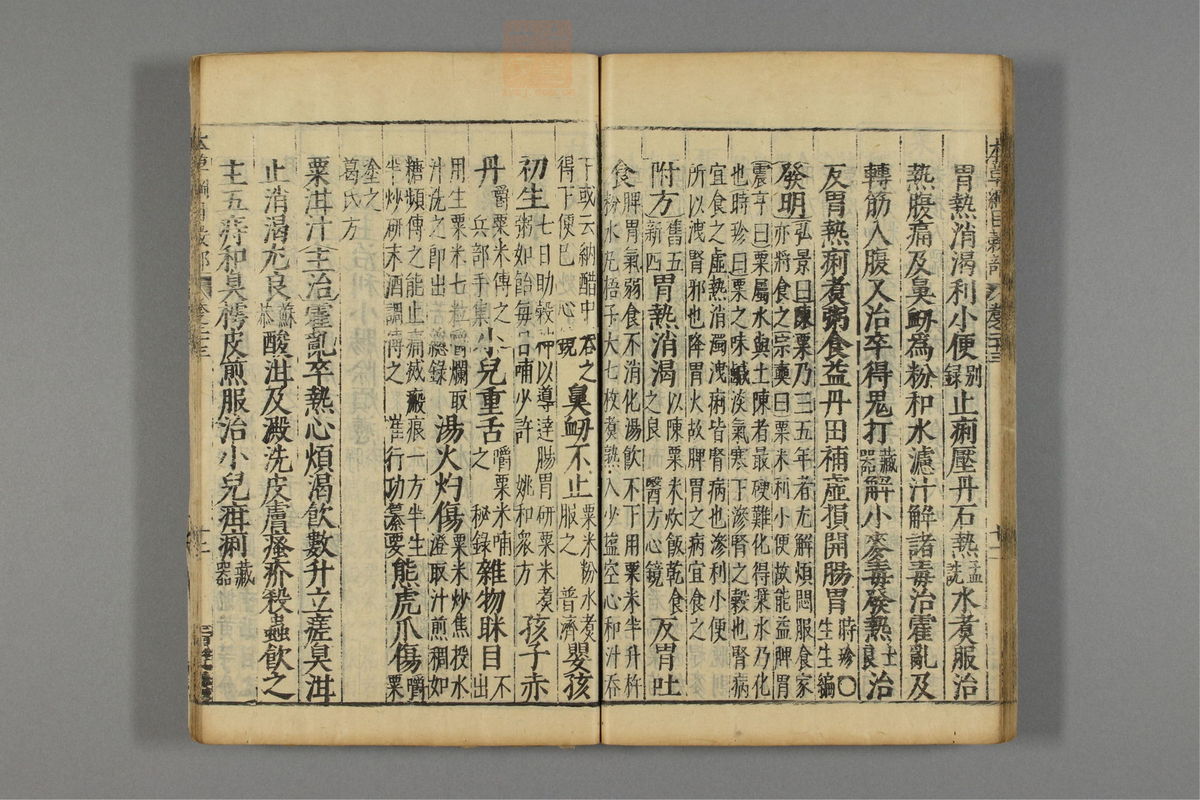 胃熱消渴利小便別録止痢壓丹石熱孟詵水煮服治
熱腹痛及鼻衂爲粉和水濾汁解諸毒治霍亂及
轉筋入腹又治卒得鬼打藏器解小麥毒發熱士良治
反胃熱痢煮粥食益丹田補虚損開腸胃時珍生生編○
發明弘景曰陳粟乃三五年者尤解煩悶服食家
亦將食之宗奭曰粟米利小便故能益脾胃
震亨曰粟屬水與土陳者最硬難化得漿水乃化
也時珍曰粟之味鹹淡氣寒下滲腎之穀也腎病
宜食之虚熱消渴洩痢皆腎病也滲利小便
所以洩腎邪也降胃火故脾胃之病宜食之
附方舊五新四胃熱消渴以陳粟米炊飯乾食之良食醫心鏡反胃吐
食脾胃氣弱食不消化湯飲不下用粟米半升杵
粉水丸梧子大七枚煮熟入少鹽空心和汁吞
下或云納醋中吞之得下便已鼻衂不止粟米粉水煮服之普濟嬰孩
初生七日助穀神以導達腸胃研粟米煮
粥如飴每日哺少許姚和衆方孩子赤
丹嚼粟米傅之兵部手集小兒重舌嚼粟米哺之秘録雜物眯目不出
用生粟米七粒嚼爛取汁洗之即出總録湯火灼傷粟米炒焦投水
澄取汁煎稠如
糖頻傅之能止痛滅瘢痕一方半生
半炒研末酒調傅之崔行功纂要熊虎爪傷嚼粟
塗之
葛氏方
粟泔汁主治霍亂卒熱心煩渴飲數升立瘥臭泔
止消渴尤良蘇恭酸泔及澱洗皮膚瘙疥殺蟲飲之
主五痔和臭樗皮煎服治小兒疳痢藏器